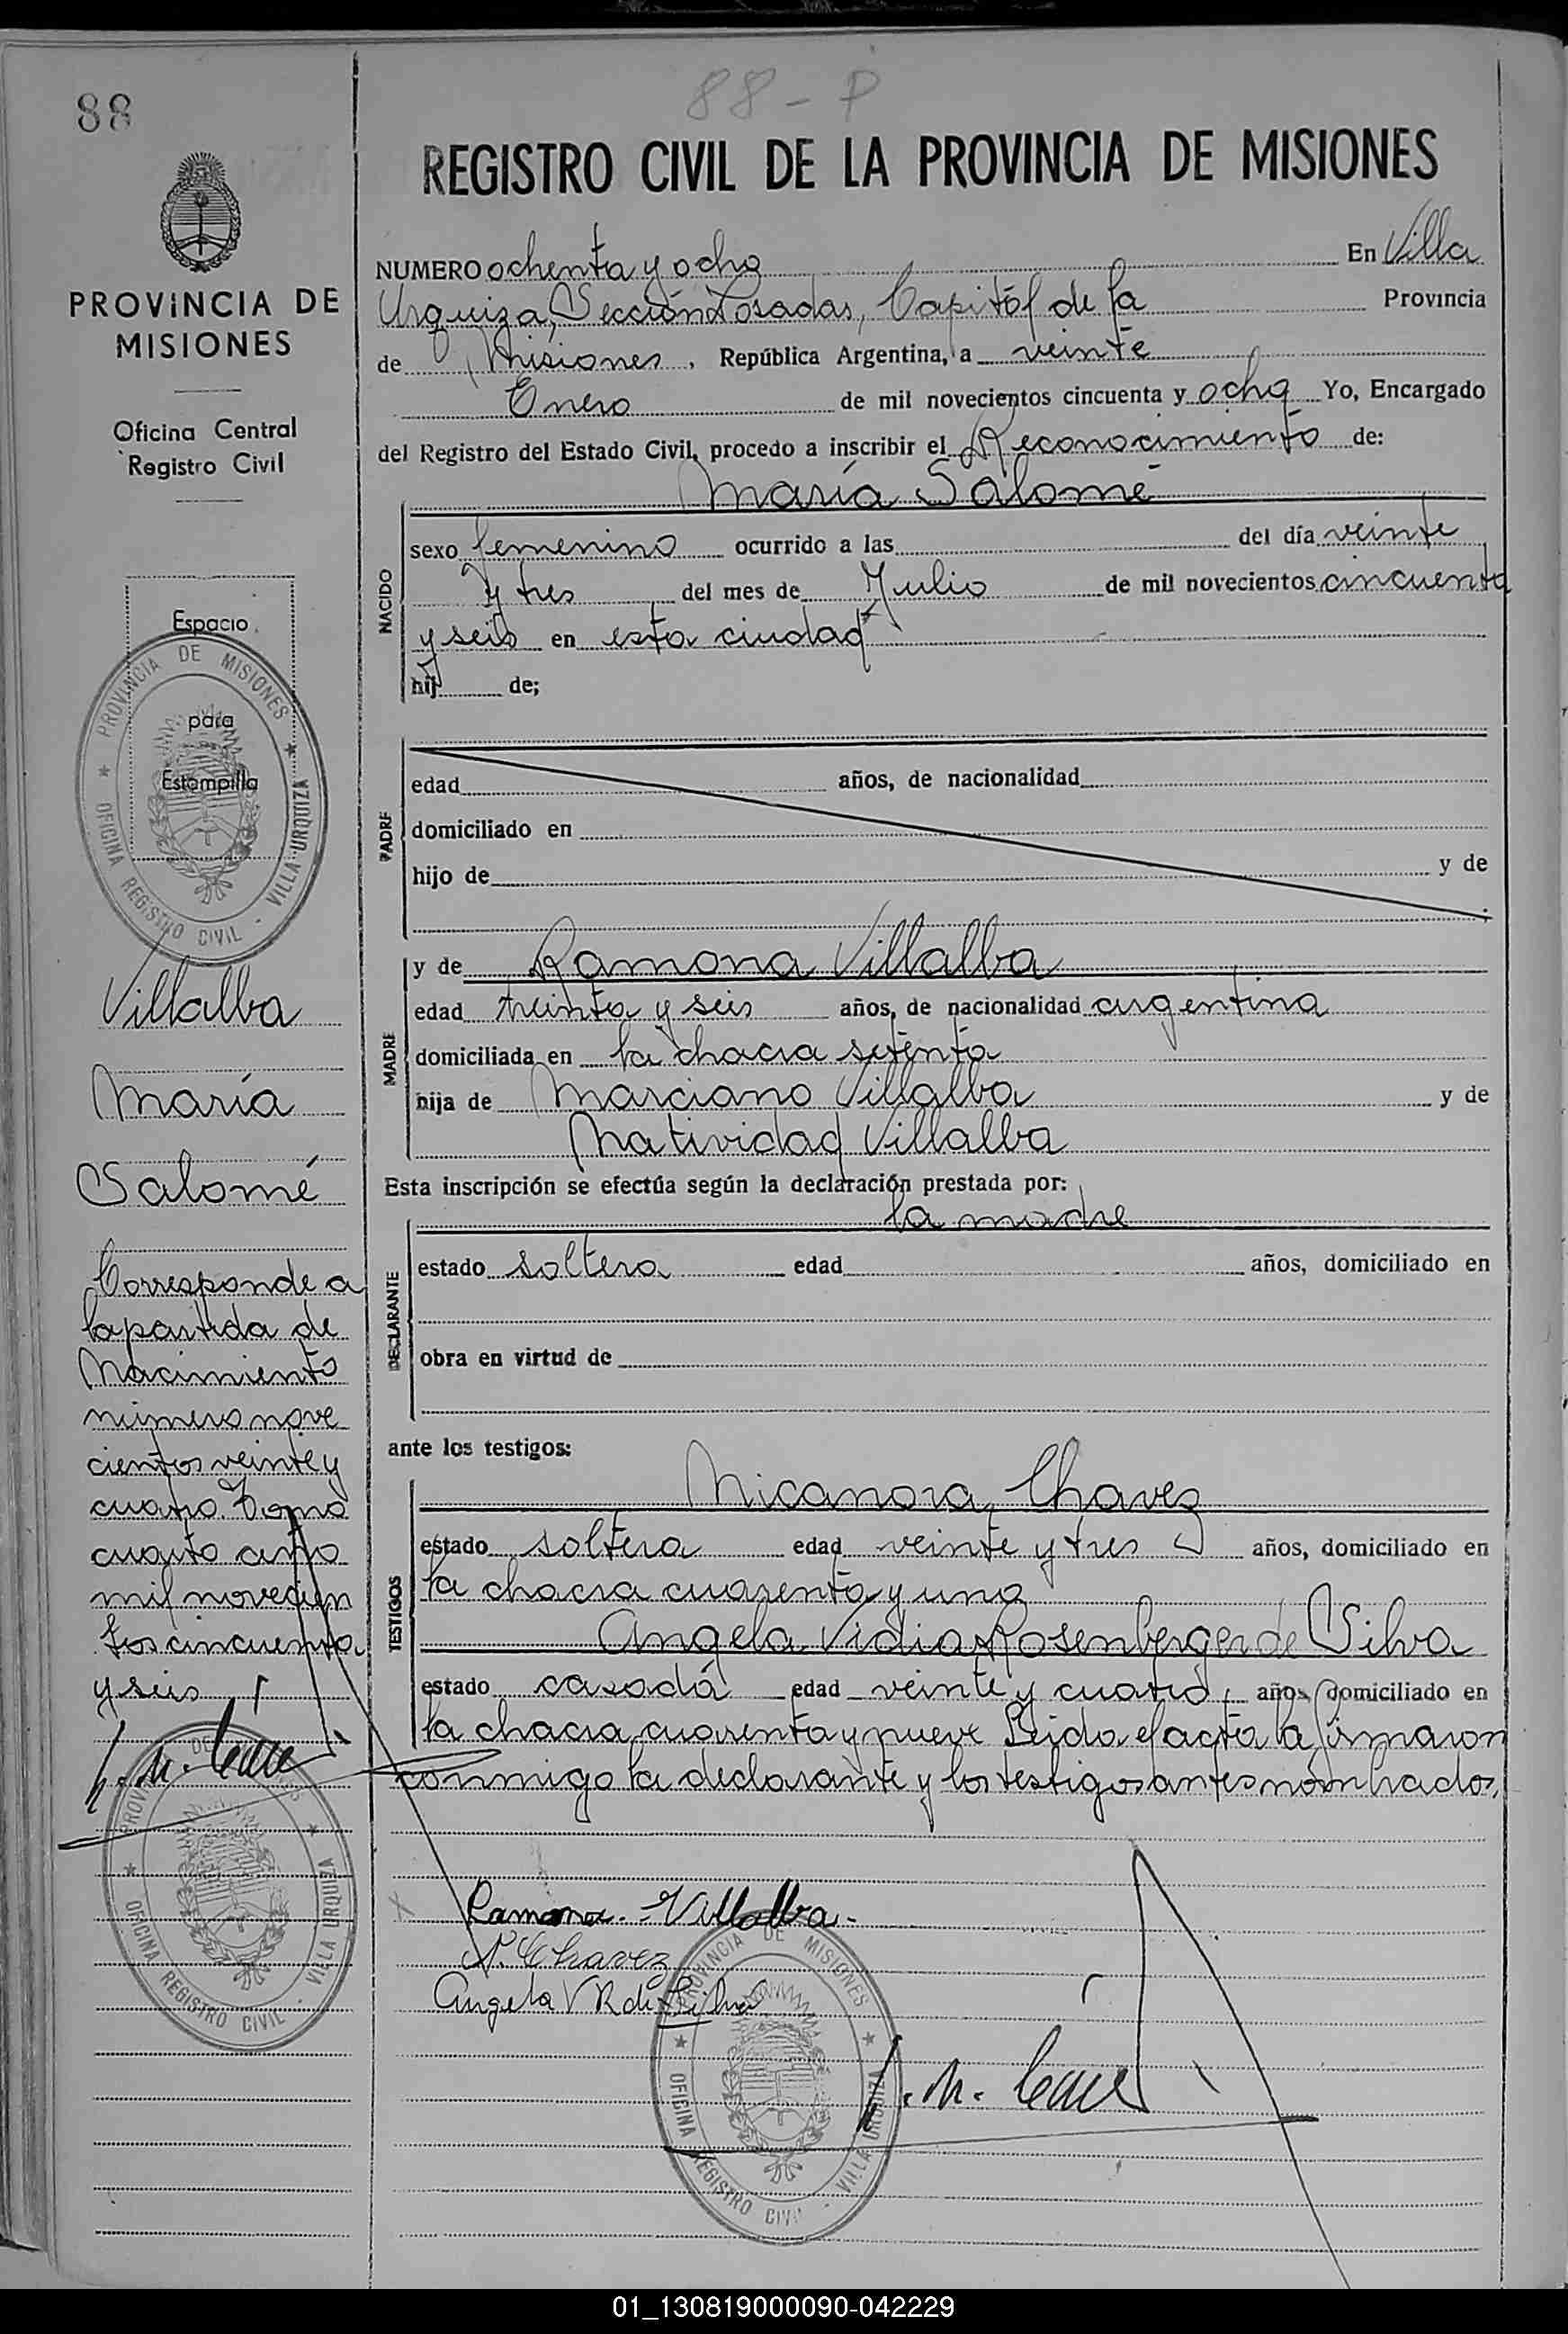 88
88 - P
PROVINCIA DE
MISIONES
Oficina Central
Registro Civil
Espacio
para
Estampilla
PROVINCIA DE MISIONES
OFICINA REGISTRO CIVIL - VILLA URQUIZA
Villalba
María
Salomé
Corresponde a
la partida de
Nacimiento
número nove
cientos veinte y
cuatro. Tomo
cuarto año
mil novecien
tos cincuenta
y seis
PROVINCIA DE MISIONES
OFICINA REGISTRO CIVIL - VILLA URQUIZA
REGISTRO CIVIL DE LA PROVINCIA DE MISIONES
NUMERO ochenta y ocho En Villa
Urquiza, Sección Posadas, Capital de la Provincia
de Misiones, República Argentina, a veinte
Enero de mil novecientos cincuenta y ocho Yo, Encargado
del Registro del Estado Civil, procedo a inscribir el Reconocimiento de:
María Salomé
NACIDO
sexo femenino ocurrido a las del día veinte
y tres del mes de Julio de mil novecientos cincuenta
y seis en esta ciudad
hij de;
PADRE
edad años, de nacionalidad
domiciliado en
hijo de y de
;
MADRE
y de Ramona Villalba
edad treinta y seis años, de nacionalidad argentina
domiciliada en la chacra setenta
hija de Marciano Villalba y de
Natividad Villalba
Esta inscripción se efectúa según la declaración prestada por:
la madre
DECLARANTE
estado soltera edad años, domiciliado en
obra en virtud de
ante los testigos:
TESTIGOS
Nicanora Chavez
estado soltera edad veinte y tres años, domiciliado en
la chacra cuarenta y una
Angela Vidia Rosenberger de Silva
estado casada edad veinte y cuatro, años, domiciliado en
la chacra cuarenta y nueve Leida el acta la firmaron
conmigo la declarante y los testigos antes nombrados,
Ramona Villalba
N. Chavez
Angela V R de Silva
PROVINCIA DE MISIONES
OFICINA REGISTRO CIVIL - VILLA URQUIZA
01_130819000090-042229